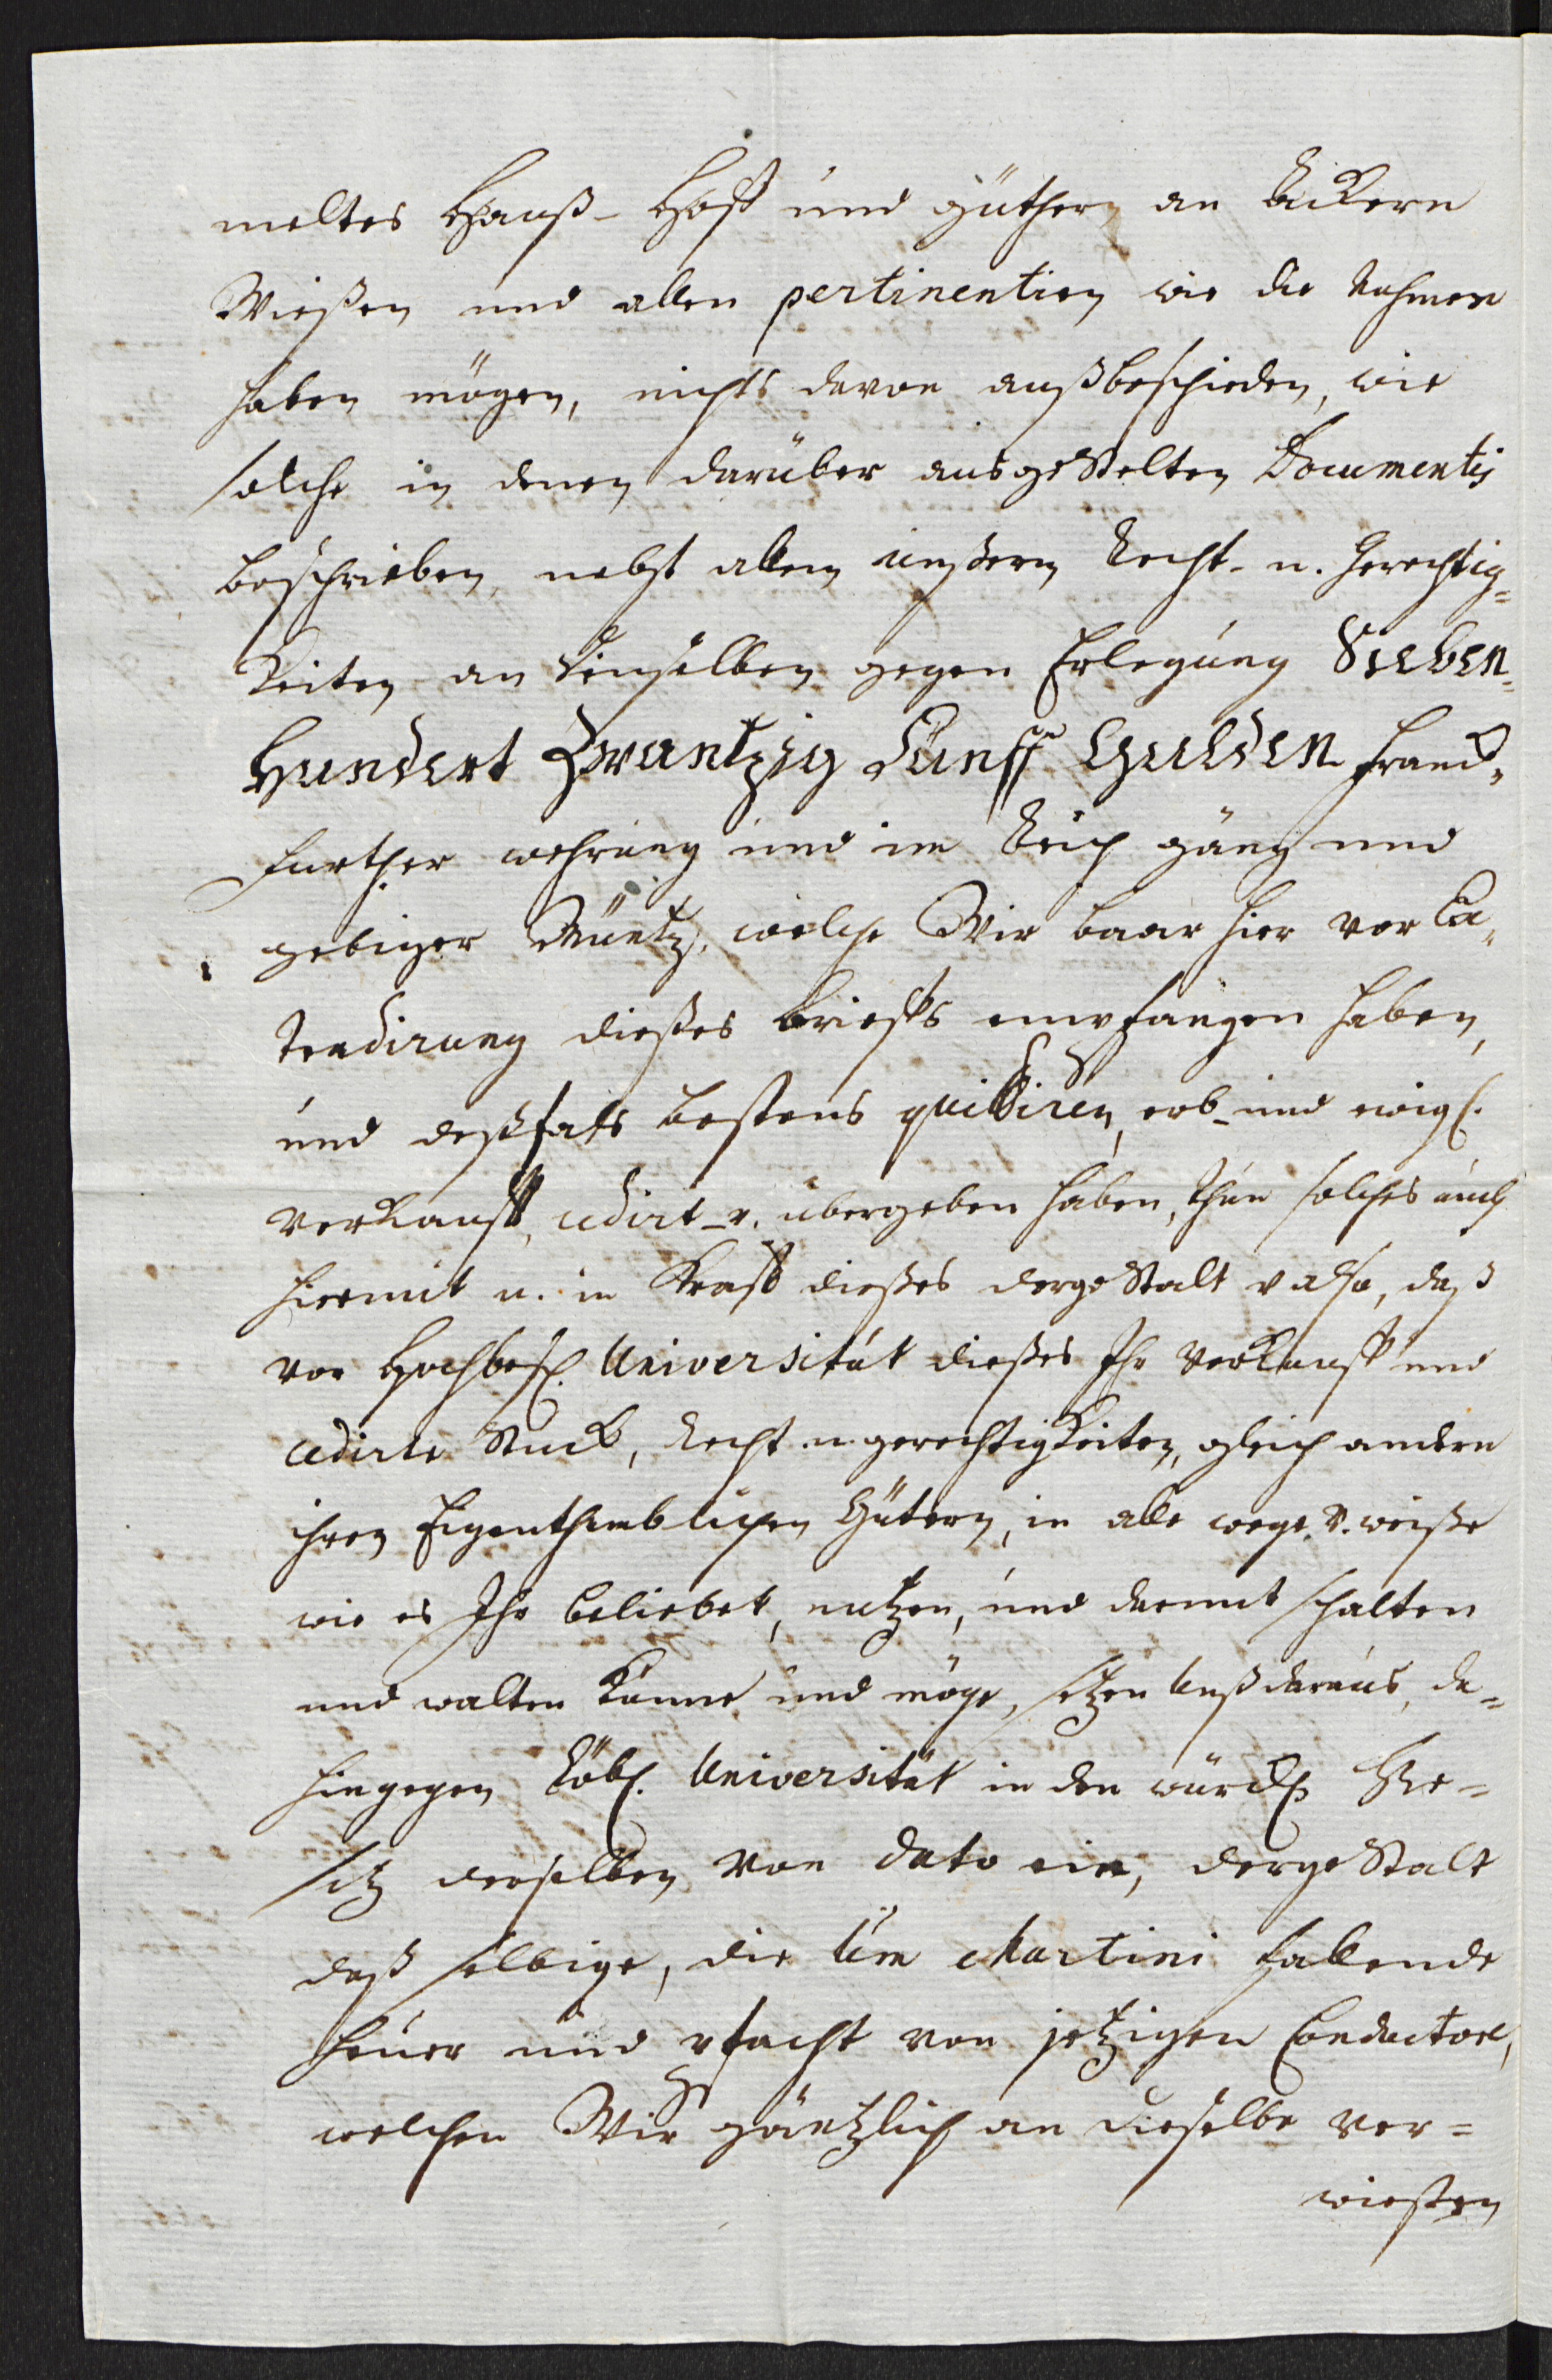 meltes Hauß- Hoff und güthern an Äckern
Wießen und allen pertinentien wie die Nahmen
haben mögen, nichts davon außbeschieden, wie
solche in denen darüber ausgestelten Documentis
beschrieben, nebst allem unßerm Recht- u. Gerechtig=
keiten an denselben gegen Erlegung Sieben=
Hundert Zwantzig Fünff Gulden Franck=
further wehrung und im Reich gäng und
gebiger Müntz, welche Wir baar hier vor Ex=
tradirung dießes brieffs empfangen haben,
und deßfals bestens quittiren, erb- und ewigl.
verkaufft, cedirt u. übergeben haben, thun solches auch
hiermit u. in Krafft dießes dergestalt u also, daß
vor Hochbes. Universität dießes Ihr verkaufft und
cedirte Stuck, Recht u. gerechtigkeiten, gleich andern
ihren Eigenthumblichen Gütern, in alle wege u. weiße
wie es Ihr beliebet, nutzen, und darmit schalten
und walten könne und möge, setzen Unß daraus, da=
hingegen Löbl. Universität in den würckl. Be=
sitz derselben von dato ein, dergestalt
daß selbige, die Um Martini fallende
Heuer und pfacht von jetzigen Conductore,
welchen Wir gäntzlich an dieselbe ver=
wießen